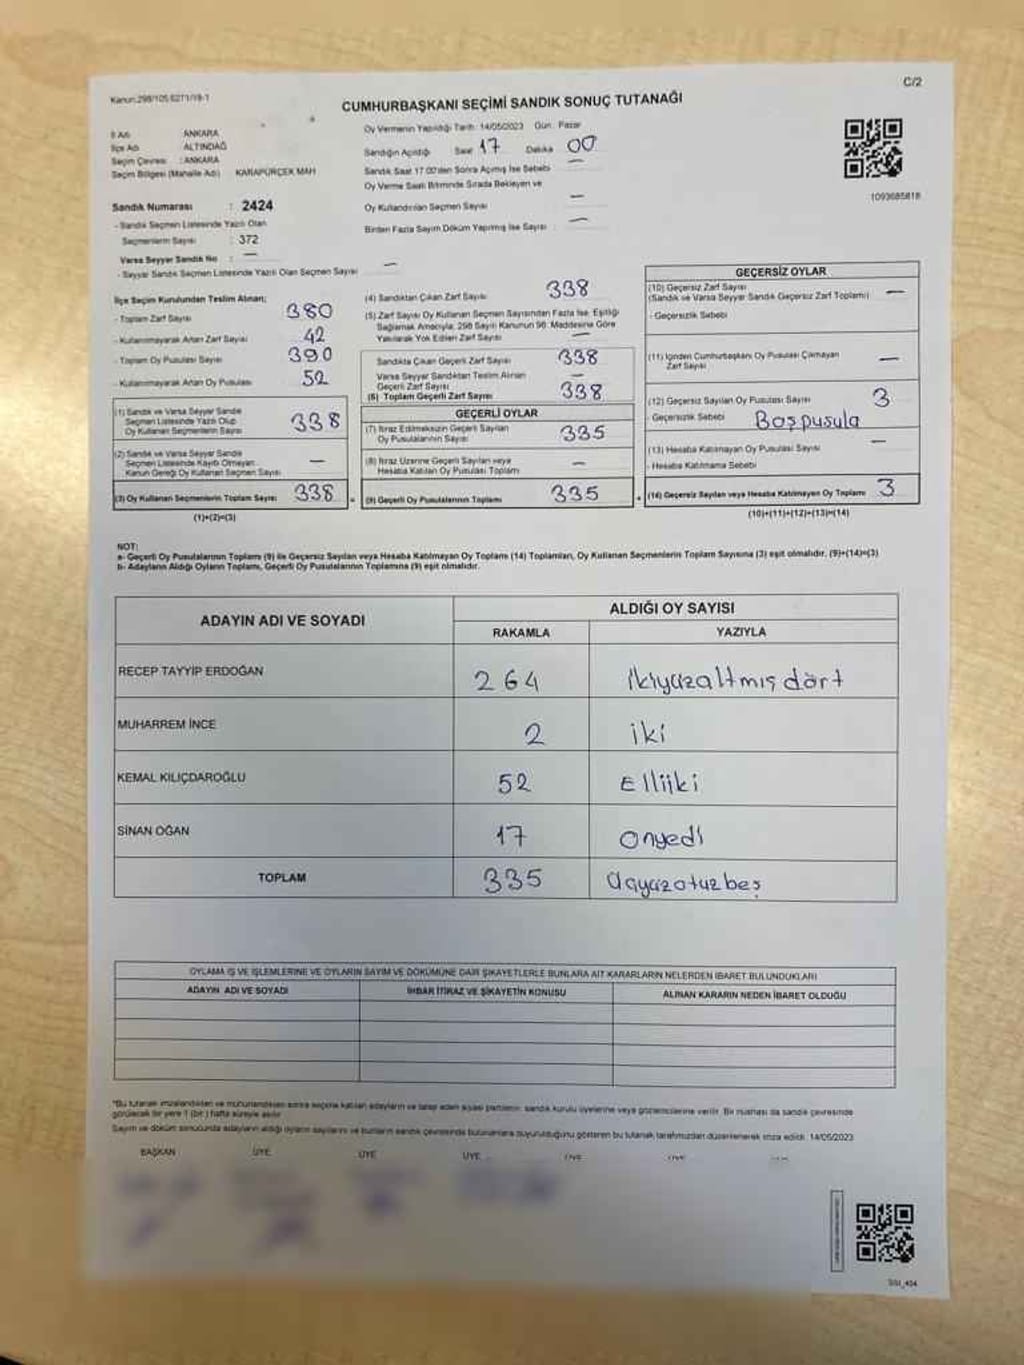 Kanun:298/105 6271/19-1
C/2
CUMHURBAŞKANI SEÇİMİ SANDIK SONUÇ TUTANAĞI
İl Adı ANKARA
İlçe Adı ALTINDAĞ
Seçim Çevresi : ANKARA
Seçim Bölgesi (Mahalle Adı) KARAPÜRÇEK MAH
Sandık Numarası : 2424
- Sandık Seçmen Listesinde Yazılı Olan
Seçmenlerin Sayısı : 372
Varsa Seyyar Sandık No : —
- Seyyar Sandık Seçmen Listesinde Yazılı Olan Seçmen Sayısı —
Oy Vermenin Yapıldığı Tarih: 14/05/2023 Gün : Pazar
Sandığın Açıldığı Saat 17 Dakika 00
Sandık Saat 17.00'den Sonra Açılmış İse Sebebi —
Oy Verme Saati Bitiminde Sırada Bekleyen ve
Oy Kullandırılan Seçmen Sayısı —
Birden Fazla Sayım Döküm Yapılmış İse Sayısı —
1093685818
İlçe Seçim Kurulundan Teslim Alınan;
- Toplam Zarf Sayısı 380
- Kullanılmayarak Artan Zarf Sayısı 42
- Toplam Oy Pusulası Sayısı 390
- Kullanılmayarak Artan Oy Pusulası 52
(1) Sandık ve Varsa Seyyar Sandık
Seçmen Listesinde Yazılı Olup
Oy Kullanan Seçmenlerin Sayısı 338
(2) Sandık ve Varsa Seyyar Sandık
Seçmen Listesinde Kaydı Olmayan
Kanun Gereği Oy Kullanan Seçmen Sayısı —
(3) Oy Kullanan Seçmenlerin Toplam Sayısı 338
(1)+(2)=(3)
(4) Sandıktan Çıkan Zarf Sayısı 338
(5) Zarf Sayısı Oy Kullanan Seçmen Sayısından Fazla İse, Eşitliği
Sağlamak Amacıyla, 298 Sayılı Kanunun 98. Maddesine Göre
Yakılarak Yok Edilen Zarf Sayısı —
Sandıkta Çıkan Geçerli Zarf Sayısı 338
Varsa Seyyar Sandıktan Teslim Alınan
Geçerli Zarf Sayısı —
(6) Toplam Geçerli Zarf Sayısı 338
GEÇERLİ OYLAR
(7) İtiraz Edilmeksizin Geçerli Sayılan
Oy Pusulalarının Sayısı 335
(8) İtiraz Üzerine Geçerli Sayılan veya
Hesaba Katılan Oy Pusulası Toplamı —
= (9) Geçerli Oy Pusulalarının Toplamı 335
GEÇERSİZ OYLAR
(10) Geçersiz Zarf Sayısı —
(Sandık ve Varsa Seyyar Sandık Geçersiz Zarf Toplamı)
- Geçersizlik Sebebi
(11) İçinden Cumhurbaşkanı Oy Pusulası Çıkmayan
Zarf Sayısı —
(12) Geçersiz Sayılan Oy Pusulası Sayısı 3
- Geçersizlik Sebebi Boşpusula
(13) Hesaba Katılmayan Oy Pusulası Sayısı —
- Hesaba Katılmama Sebebi
+ (14) Geçersiz Sayılan veya Hesaba Katılmayan Oy Toplamı 3
(10)+(11)+(12)+(13)=(14)
NOT:
a- Geçerli Oy Pusulalarının Toplamı (9) ile Geçersiz Sayılan veya Hesaba Katılmayan Oy Toplamı (14) Toplamları, Oy Kullanan Seçmenlerin Toplam Sayısına (3) eşit olmalıdır. (9)+(14)=(3)
b- Adayların Aldığı Oyların Toplamı, Geçerli Oy Pusulalarının Toplamına (9) eşit olmalıdır.
ADAYIN ADI VE SOYADI
ALDIĞI OY SAYISI
RAKAMLA YAZIYLA
RECEP TAYYİP ERDOĞAN 264 ikiyüzaltmış dört
MUHARREM İNCE 2 iki
KEMAL KILIÇDAROĞLU 52 Elliiki
SİNAN OĞAN 17 Onyedi
TOPLAM 335 Üçyüzotuzbeş
OYLAMA İŞ VE İŞLEMLERİNE VE OYLARIN SAYIM VE DÖKÜMÜNE DAİR ŞİKAYETLERLE BUNLARA AİT KARARLARIN NELERDEN İBARET BULUNDUKLARI
ADAYIN ADI VE SOYADI İHBAR İTİRAZ VE ŞİKAYETİN KONUSU ALINAN KARARIN NEDEN İBARET OLDUĞU
*Bu tutanak imzalandıktan ve mühürlendikten sonra seçime katılan adayların ve talep eden siyasi partilerin, sandık kurulu üyelerine veya gözlemcilerine verilir. Bir nüshası da sandık çevresinde
görülecek bir yere 1 (bir ) hafta süreyle asılır.
Sayım ve döküm sonucunda adayların aldığı oyların sayılarını ve bunların sandık çevresinde bulunanlara duyurulduğunu gösteren bu tutanak tarafımızdan düzenlenerek imza edildi. 14/05/2023
BAŞKAN ÜYE ÜYE ÜYE ÜYE ÜYE